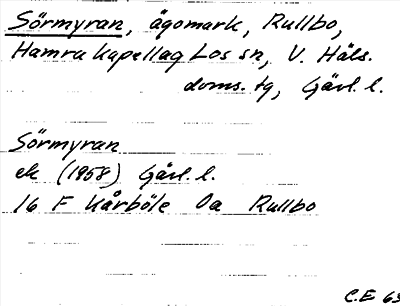 Sörmyran, ägomark, Rullbo,
Hamra kapellag Los sn, V. Häls.
doms. tg, Gävl. l.
Sörmyran
ek (1958) Gävl. l.
16 F Kårböle 0a Rullbo
C.E 63